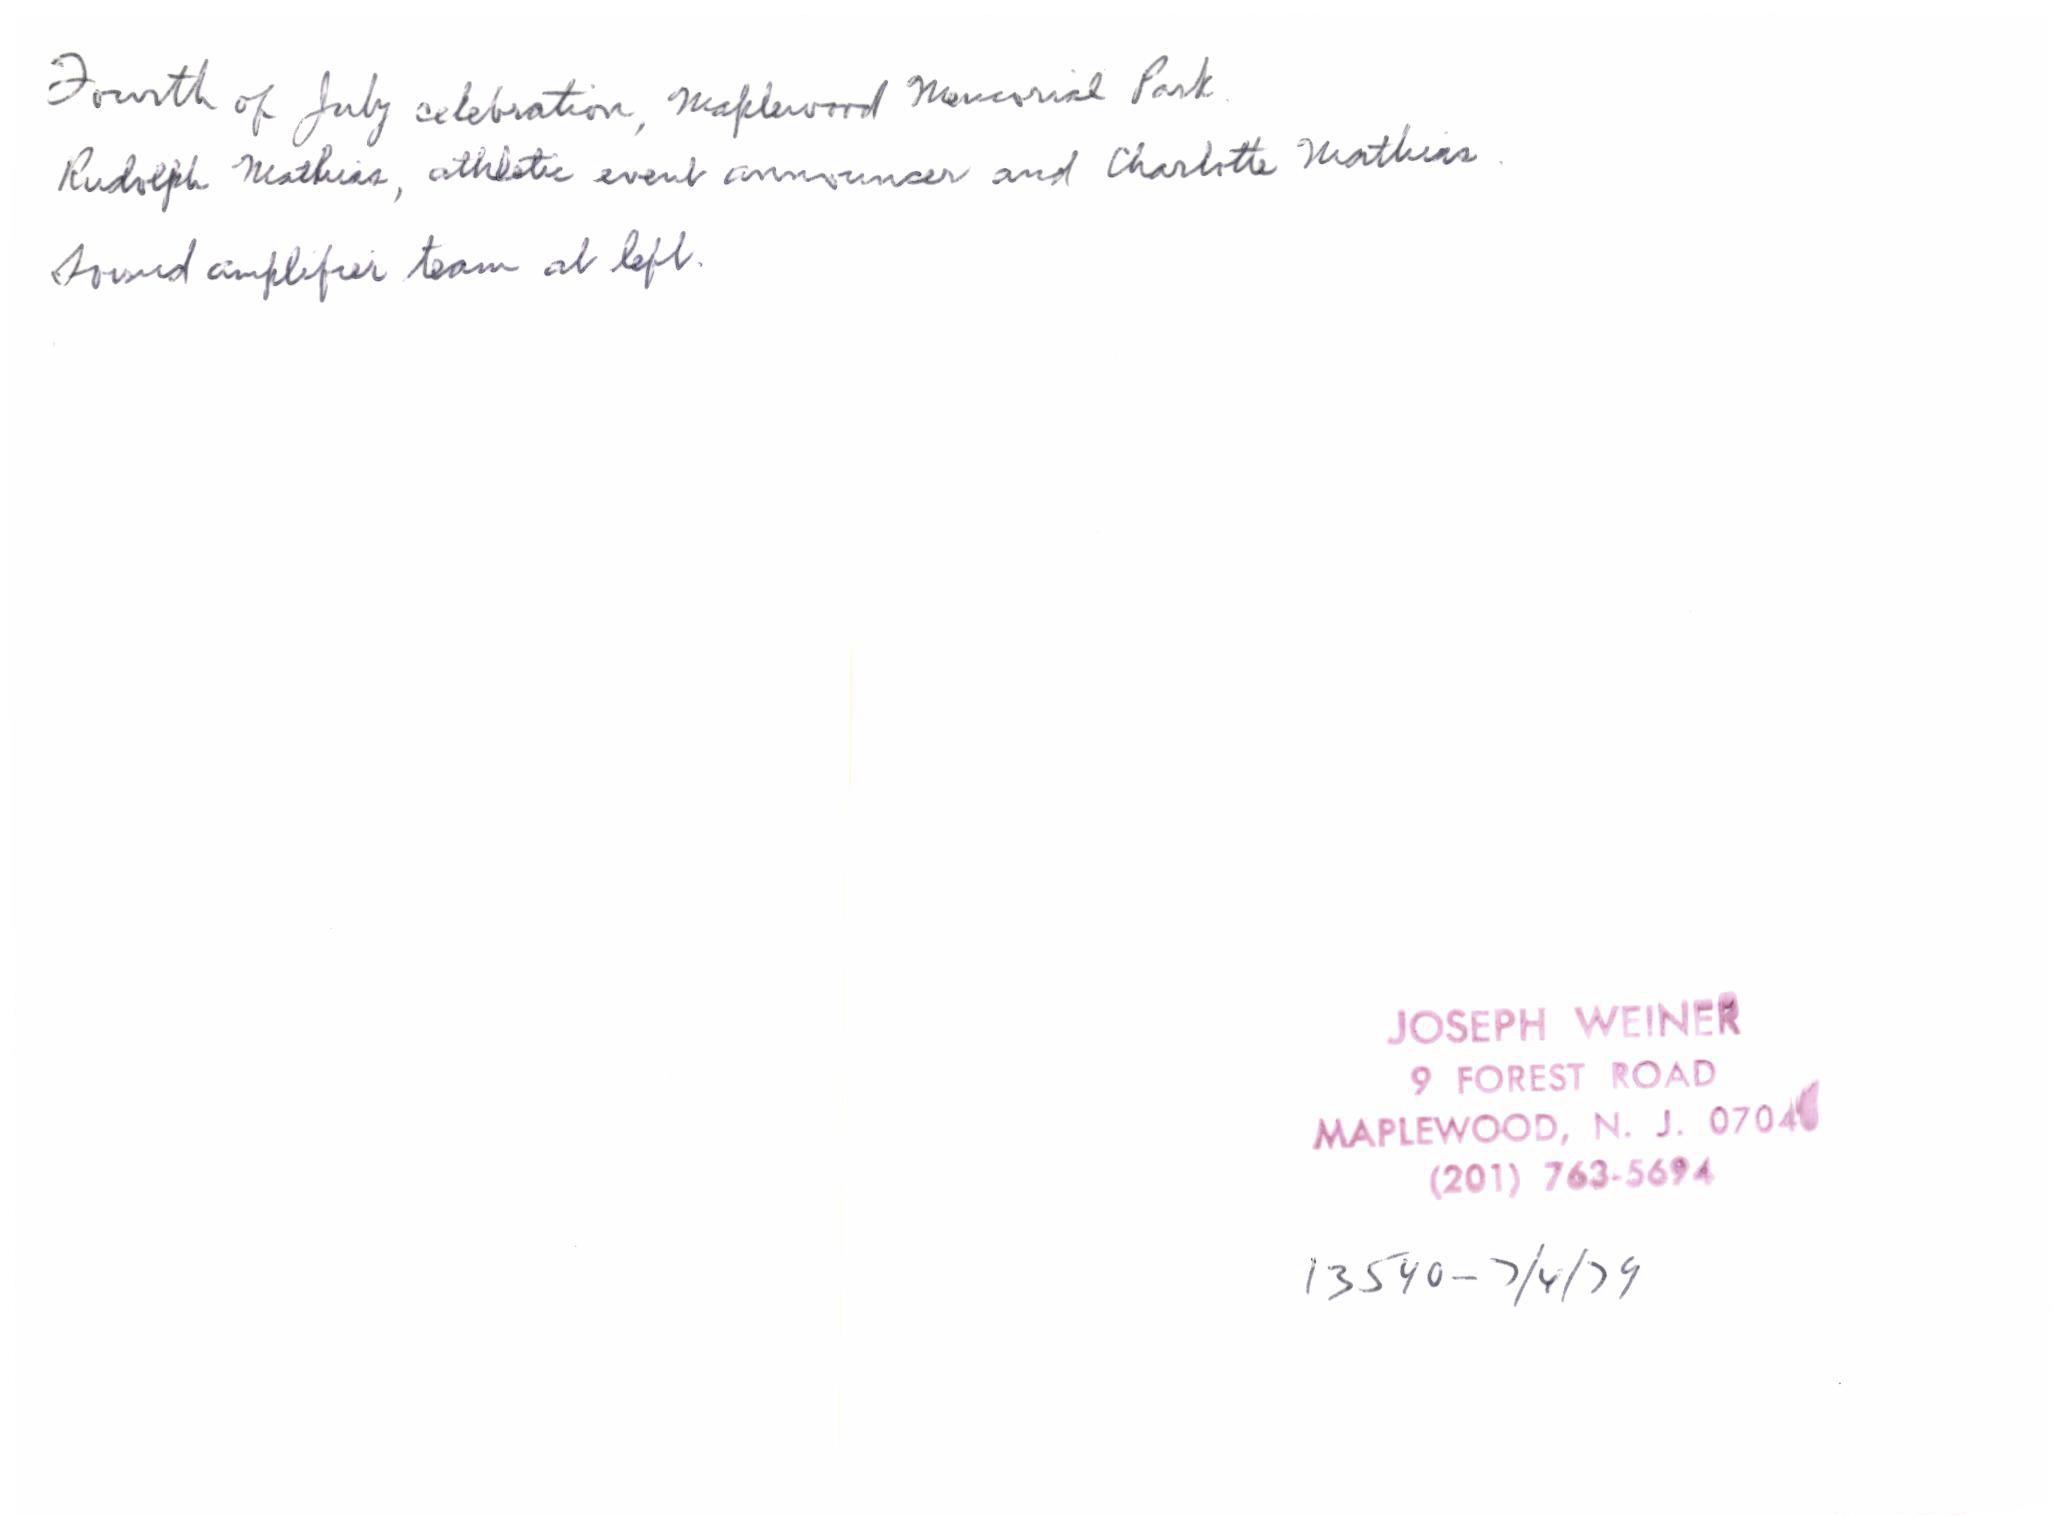 Fourth of July celebration, Maplewood Memorial Park.
Rudolph Mathias, athletic event announcer and Charlotte Mathias.
Sound amplifier team at left.
JOSEPH WEINER
9 FOREST ROAD
MAPLEWOOD, N. J. 07040
(201) 763-5694
13540-7/4/79